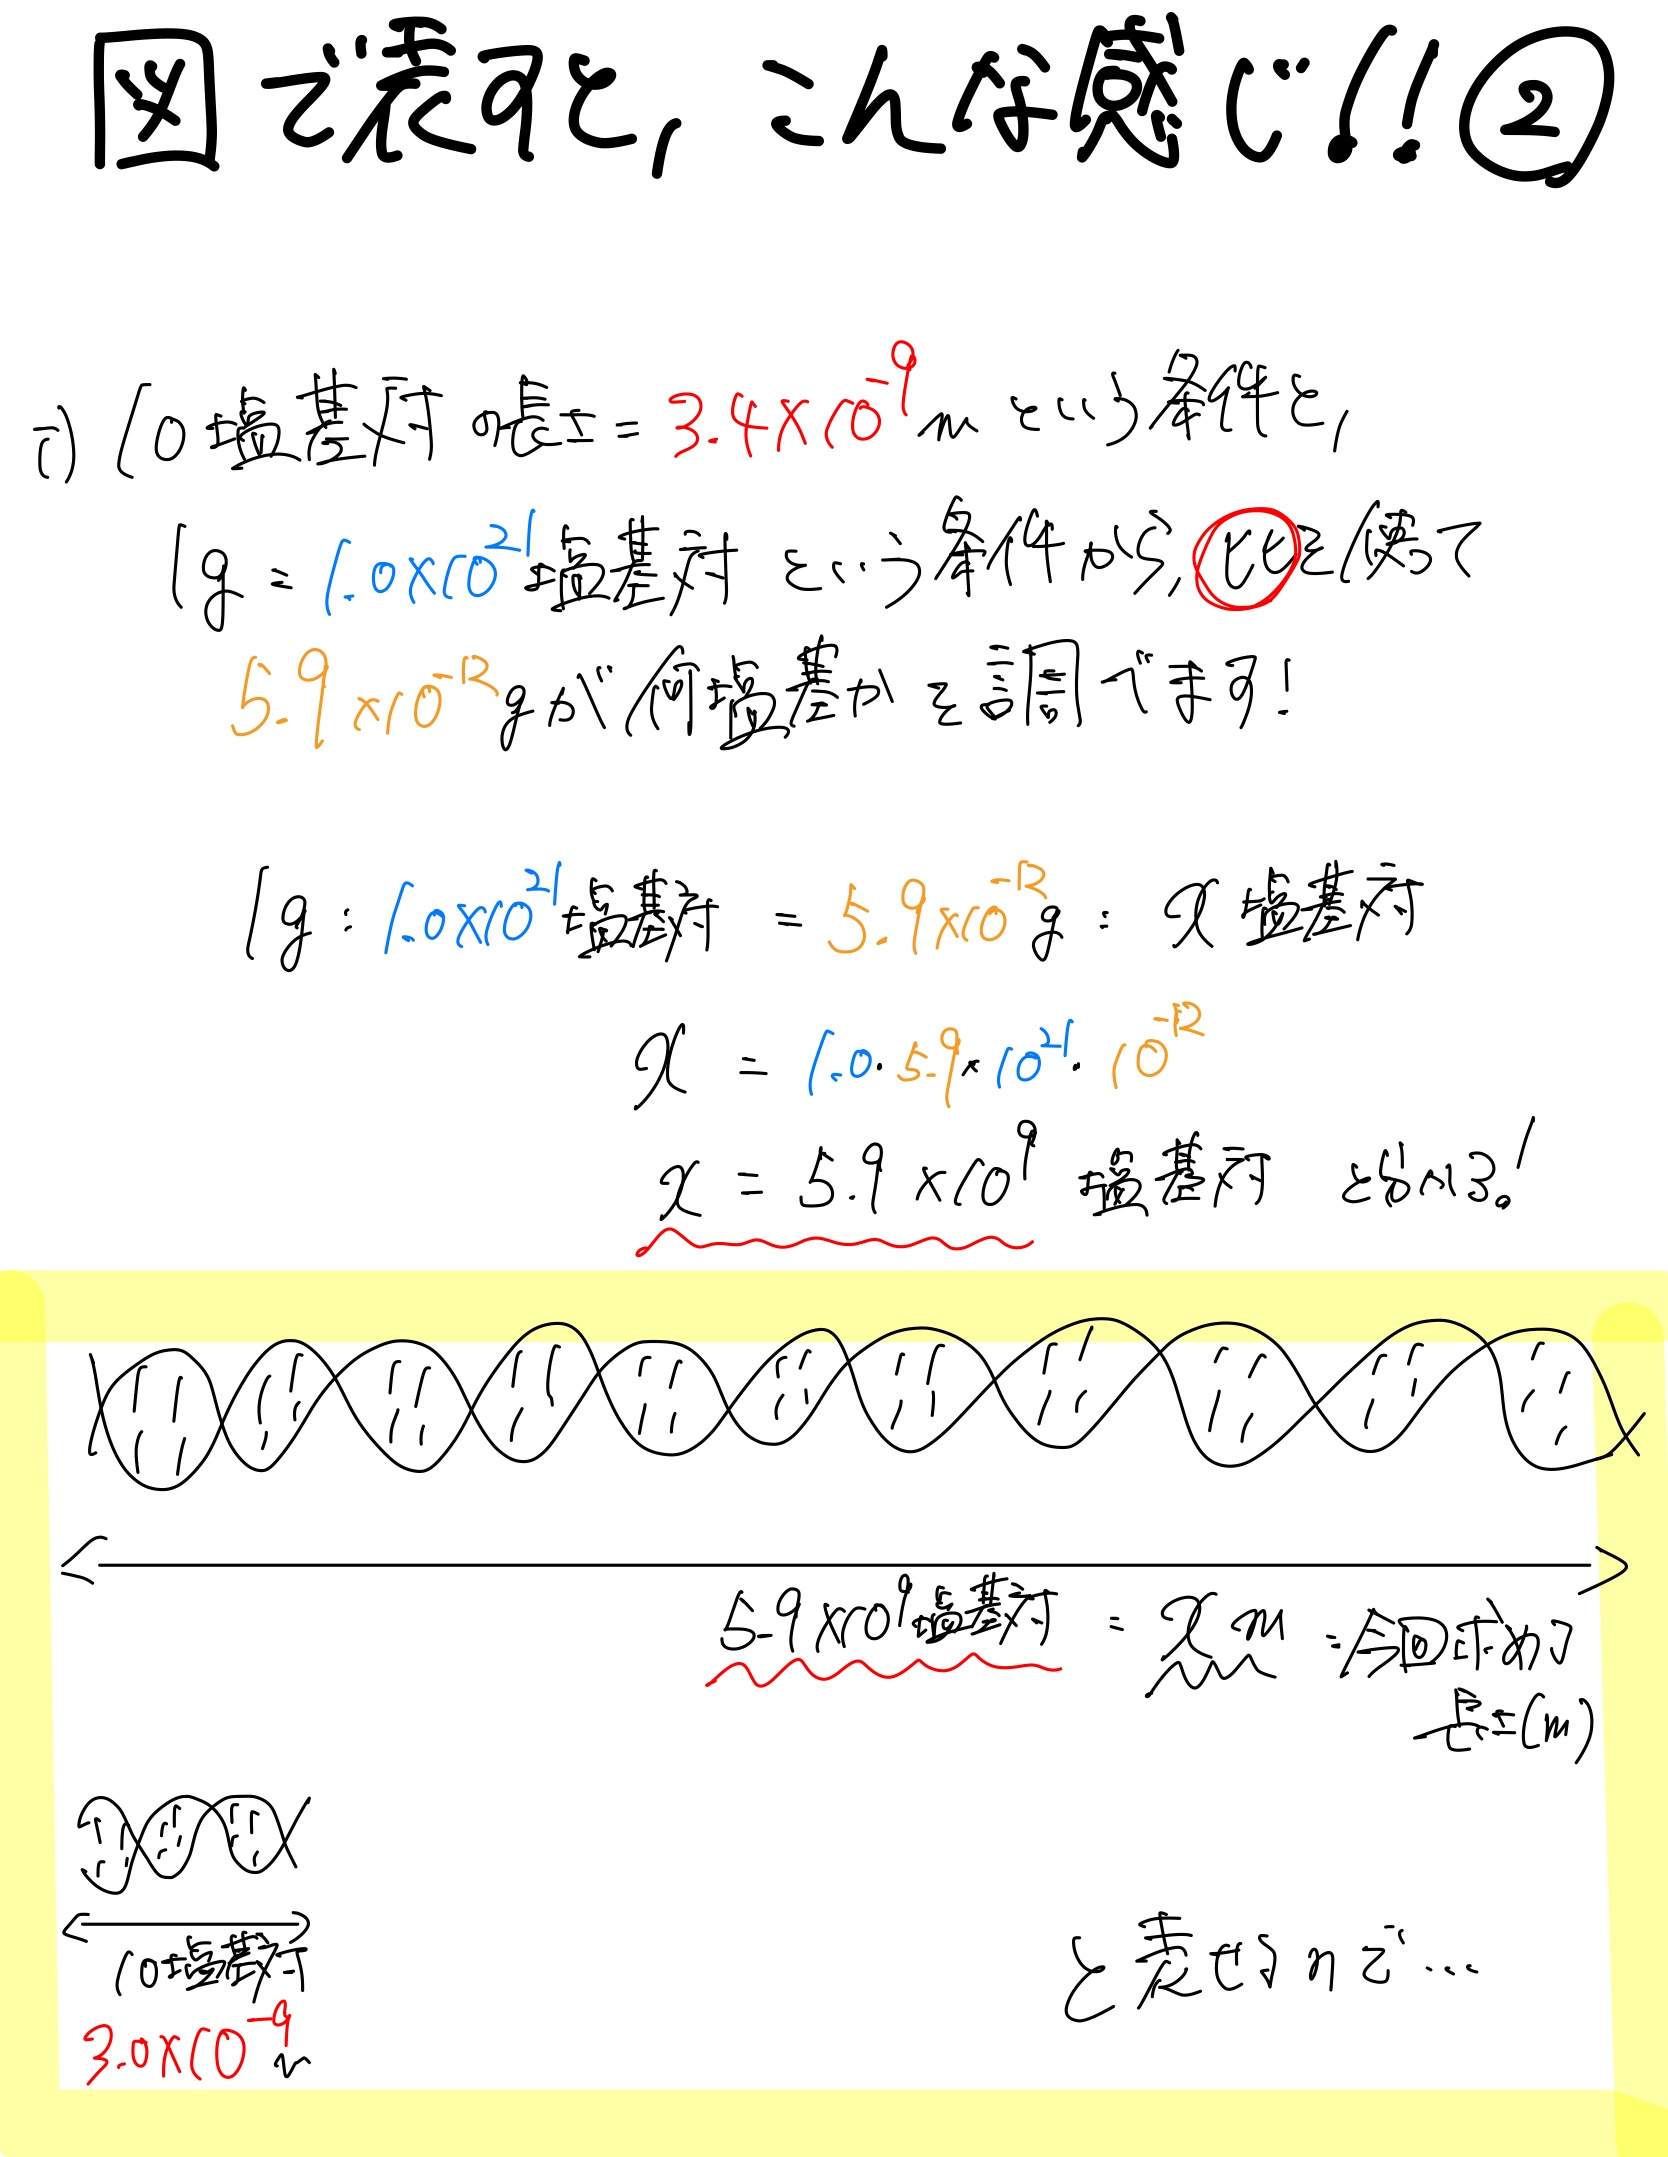 図で表すと，こんな感じ!!②
i) 10塩基対の長さ = 3.4×10⁻⁹m という条件と，
1g = 1.0×10²¹塩基対 という条件から，比を使って
5.9×10⁻¹²gが何塩基かを調べます!
1g : 1.0×10²¹塩基対 = 5.9×10⁻¹²g : x 塩基対
x = 1.0・5.9×10²¹・10⁻¹²
x = 5.9×10⁹ 塩基対 と分かる。!
5.9×10⁹塩基対 = x m = 今回求める
長さ(m)
10塩基対
3.0×10⁻⁹m
と表せるので…